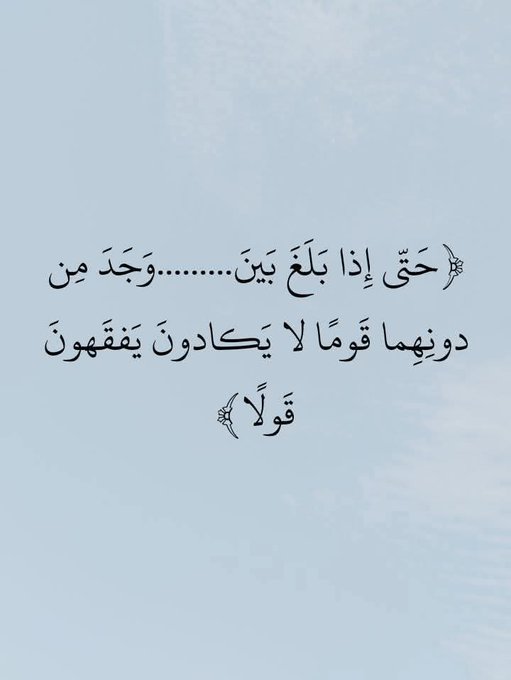 ﴿حَتّى إِذا بَلَغَ بَينَ.........وَجَدَ مِن
دونِهِما قَومًا لا يَكادونَ يَفقَهونَ
قَولًا﴾